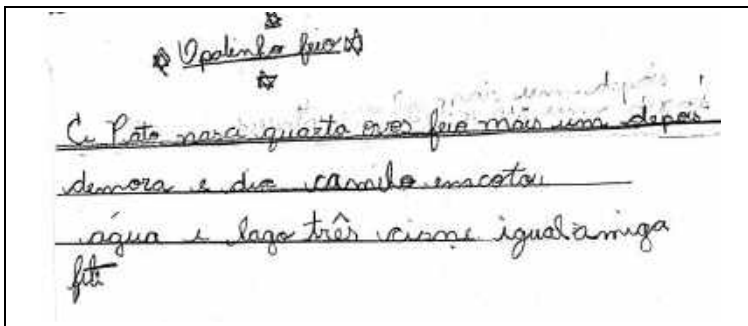 Opatinho feio
C. Pato nasci quarta ovos feio mais um depois
demora e dia camilo emcotou
água e lago três cisne igual amiga
fiti